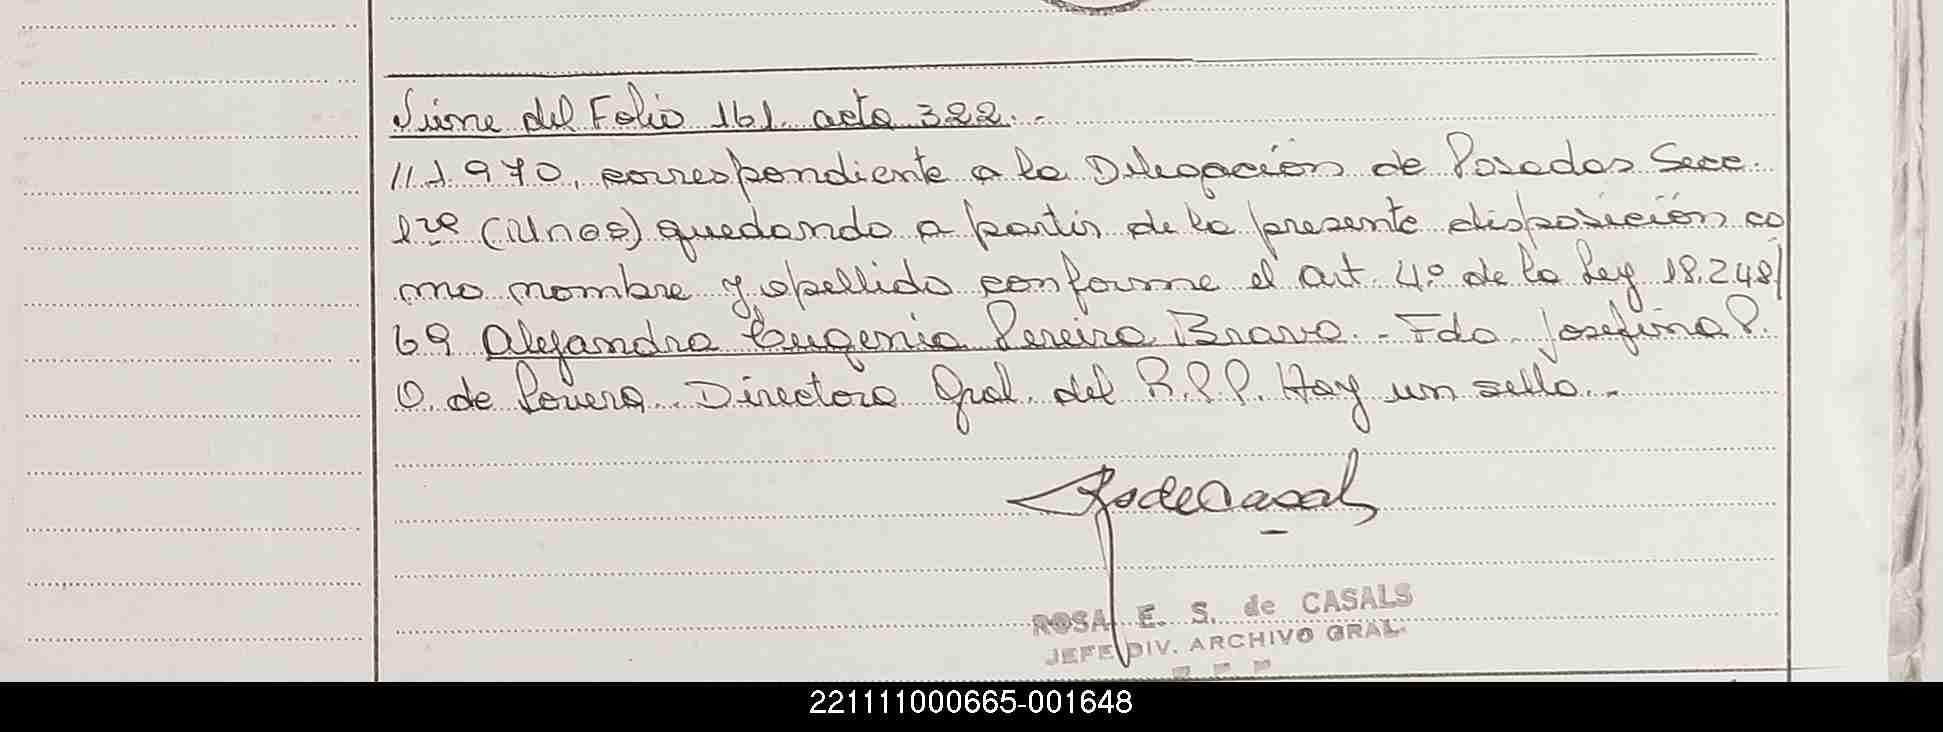 Viene del Folio 161. acta 322.-
//1.970, correspondiente a la Delegación de Posadas Secc.
1ra (Unos) quedando a partir de la presente disposición co
mo nombre y apellido conforme el art. 4º de la Ley 18.248/
69 Alejandra Eugenia Pereira Bravo.- Fdo. Josefina P.
O. de Lovera. Directora Gral. del R.P.P. Hay un sello.-
RsdeCasals
ROSA E. S. de CASALS
JEFE DIV. ARCHIVO GRAL.
221111000665-001648